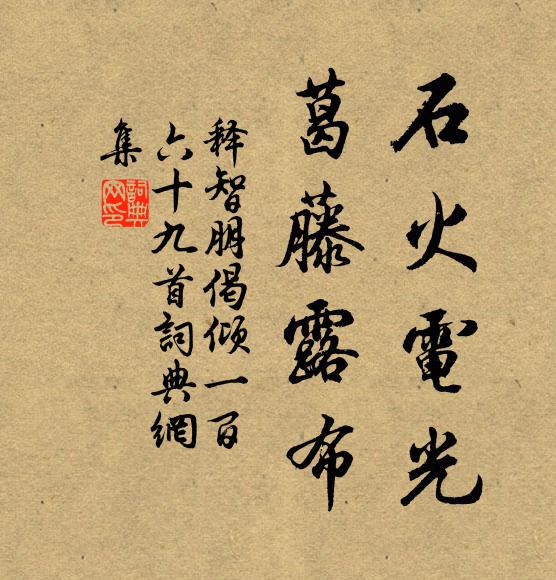 石火電光
葛藤露布
释智朋偈倾一百
六十九首詞典網
集
詞典網印